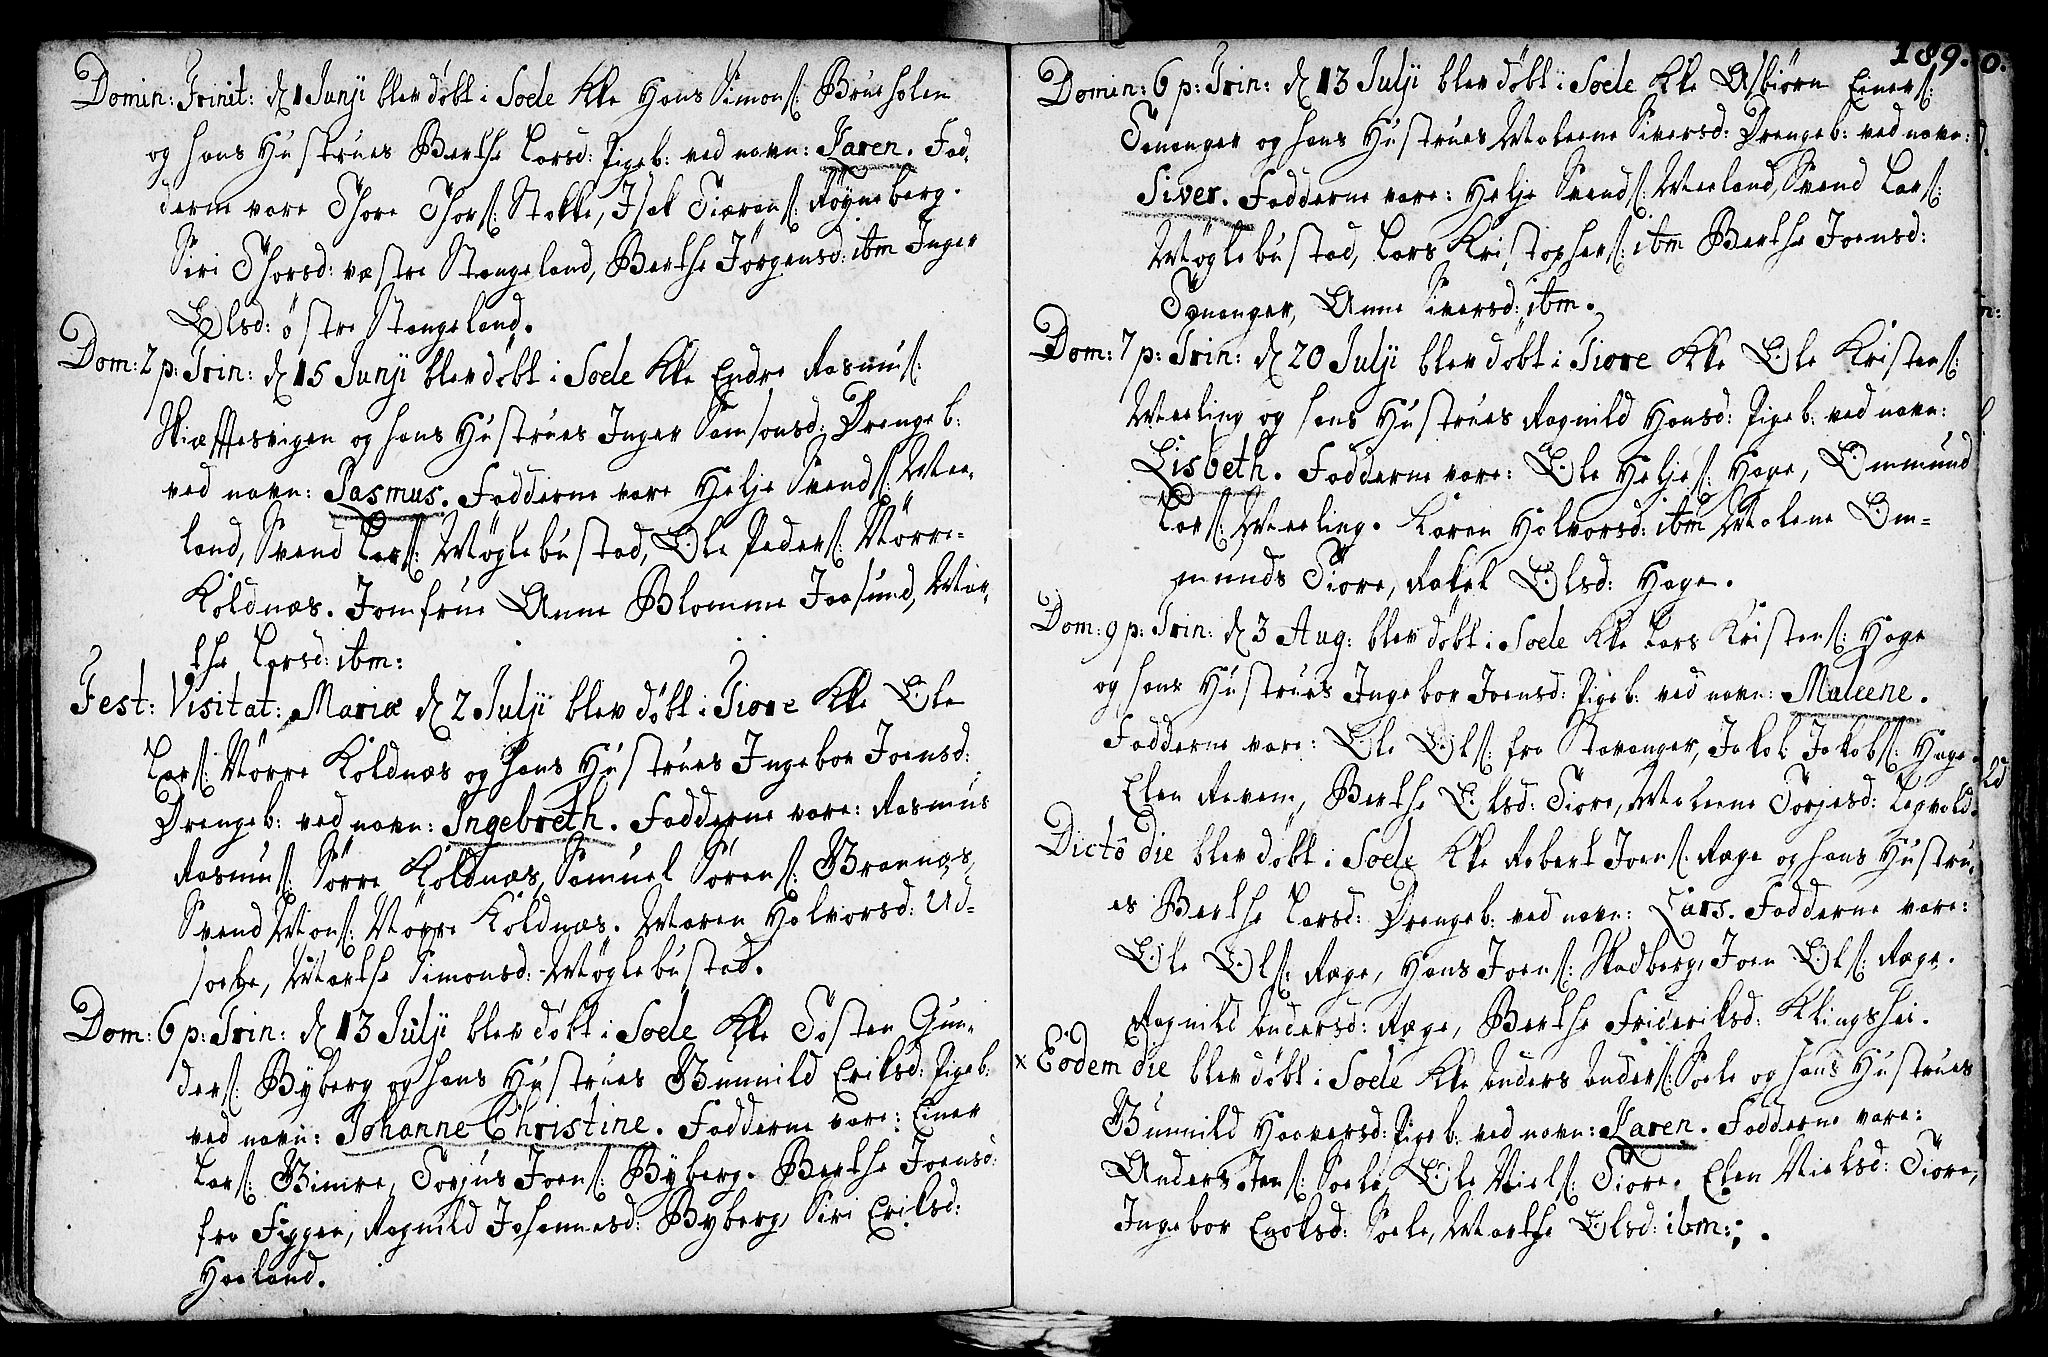 Domin: Trinit: d. 1 Junji blev døbt i Soele Kke Hans Simons: Brueholen
og hans Hustrues Berthe Larsd: Pigeb: ved navn: Karen. Fad,
derne vare Thore Thors: Stokke, Isak Siørens: Røyneberg.
Siri Thorsd: vestre Stangeland, Berthe Jørgensd: ibm Inger
Olsd: østre Stangeland.
Dom: 2 p: Trin: d. 15 Junji blev døbt i Soele Kke Endre Rasmus:
Skiæftesvigen og hans Hustrues Inger Samsonsd: Drengeb:
ved navn: Rasmus. Fadderne vare Helje Svends: Mee,
land, Svend Lars: Møglebustad, Ole Peders: Nørre-
Koldnæs. Jomfrue Anne Blomme Jaasund, Mar,
the Larsd: ibm:
Fest: Visitat: Mariæ d. 2 Julji blev døbt i Tiore Kke Ole
Lars: Nørre Koldnæs og hans Hustrues Ingebor Joensd:
Drengeb: ved navn: Ingebreth. Fadderne vare: Rasmus
Rasmus: Sørre Koldnæs, Samuel Sørens: Grannæs,
Svend Mons: Nørre Koldnæs. Maren Halvorsd: Ud-
soele, Marthe Simonsd: Møglebustad.
Dom: 6 p: Trin: d. 13 Julji blev døbt i Soele Kke Tosten Gun,
ders: Byberg og hans Hustrues Gunnild Eriksd: Pigeb:
ved navn: Johanne Christine. Fadderne vare: Einer
Lars: Gimre, Torjus Joens: Byberg. Berthe Joensd:
fra Figgen, Ragnild Johannesd: Byberg, Siri Eriksd:
Haaland.
189.
Domin: 6 p: Trin: d. 13 Julji blev døbt i Soele Kke Asbiørn Einers:
Tananger og hans Hustrues Maleene Siversd: Drengeb: ved navn:
Siver. Fadderne vare: Helje Svends: Meeland, Svend Lars:
Møglebustad, Lars Kristophers: ibm Berthe Joensd:
Tananger, Anne Siversd: ibm.
Dom: 7 p: Trin: d. 20 Julji blev døbt i Tiore Kke Ole Kristens:
Meeling og hans Hustrues Ragnild Hansd: Pigeb: ved navn:
Lisbeth. Fadderne vare: Ole Heljes: Hage, Ommund
Lars: Meeling. Karen Halvorsd: ibm Malene Om-
munds Tiore, Rakel Olsd: Hage.
Dom: 9 p: Trin: d. 3 Aug: blev døbt i Soele Kke Lars Kristens: Hage
og hans Hustrues Ingebor Joensd: Pigeb: ved navn: Maleene.
Fadderne vare: Ole Ols: fra Stavanger, Jakob Jakobs: Hage.
Elen Revem, Berthe Olsd: Tiore, Maleene Torjesd: Legvold.
Dictô die blev døbt i Soele Kke Robert Joens: Ræge og hans Hustru,
es Berthe Larsd: Drengeb: ved navn: Lars. Fadderne vare:
Ole Ols: Ræge, Hans Joens: Skadberg, Joen Ols: Ræge.
Ragnild Andersd: Ræge, Berthe Frideriksd: Klingshei.
x Eôdem die blev døbt i Soele Kke Anders Anders: Soele og hans Hustrues
Gunnild Haaversd: Pigeb: ved navn: Karen. Fadderne vare:
Anders Jens: Soele, Ole Niels: Tiore. Elen Nielsd: Tiore,
Ingebor Enoksd: Soele, Marthe Olsd: ibm:.